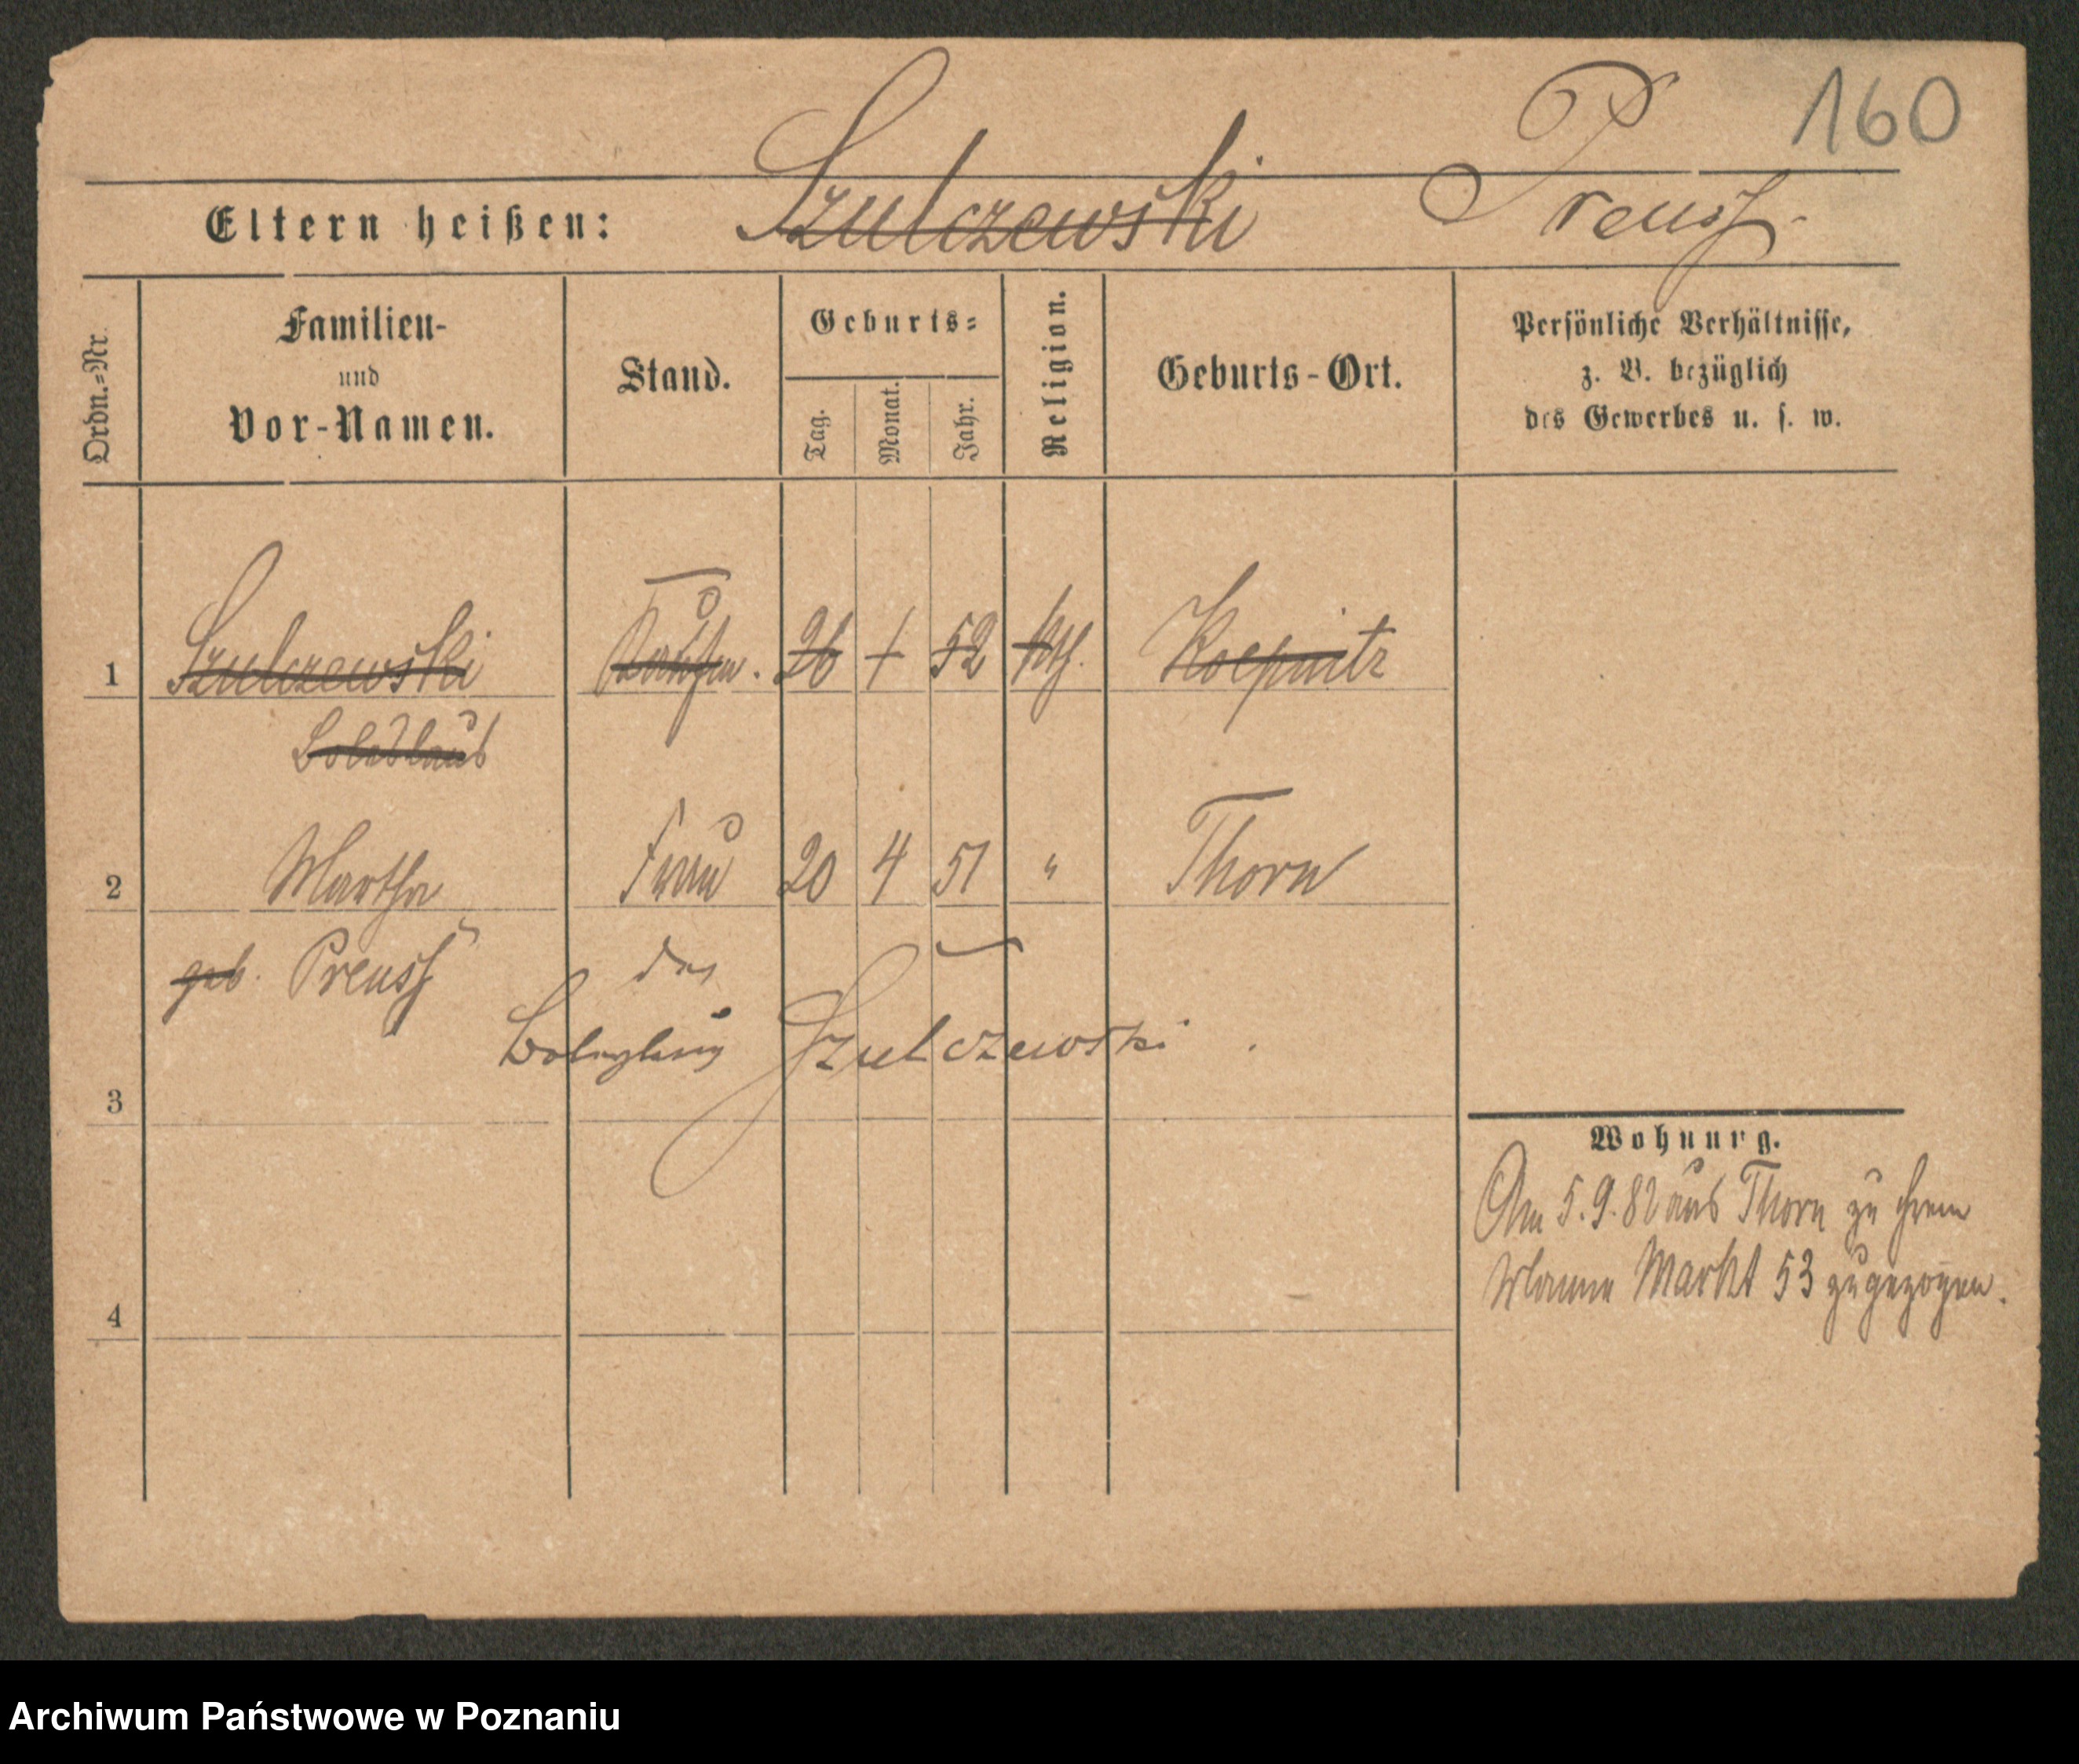 160
Eltern heißen: Szulczewski Preuss.
Ordn.=Nr.
Familien-
und
Vor-Namen.
Stand.
Geburts=
Tag.
Monat.
Jahr.
Religion.
Geburts-Ort.
Persönliche Verhältnisse,
z. B. bezüglich
des Gewerbes u. s. w.
1 Szulczewski Kaufm. 26 1 52 kth. Koepnitz
Boleslaus
2 Martha Frau 20 4 51 " Thorn
geb. Preuss des
Boleslaus Szulczewski.
3
Wohnung.
Am 5.9.82 aus Thorn zu ihrem
Manne Markt 53 zugezogen.
4
Archiwum Państwowe w Poznaniu